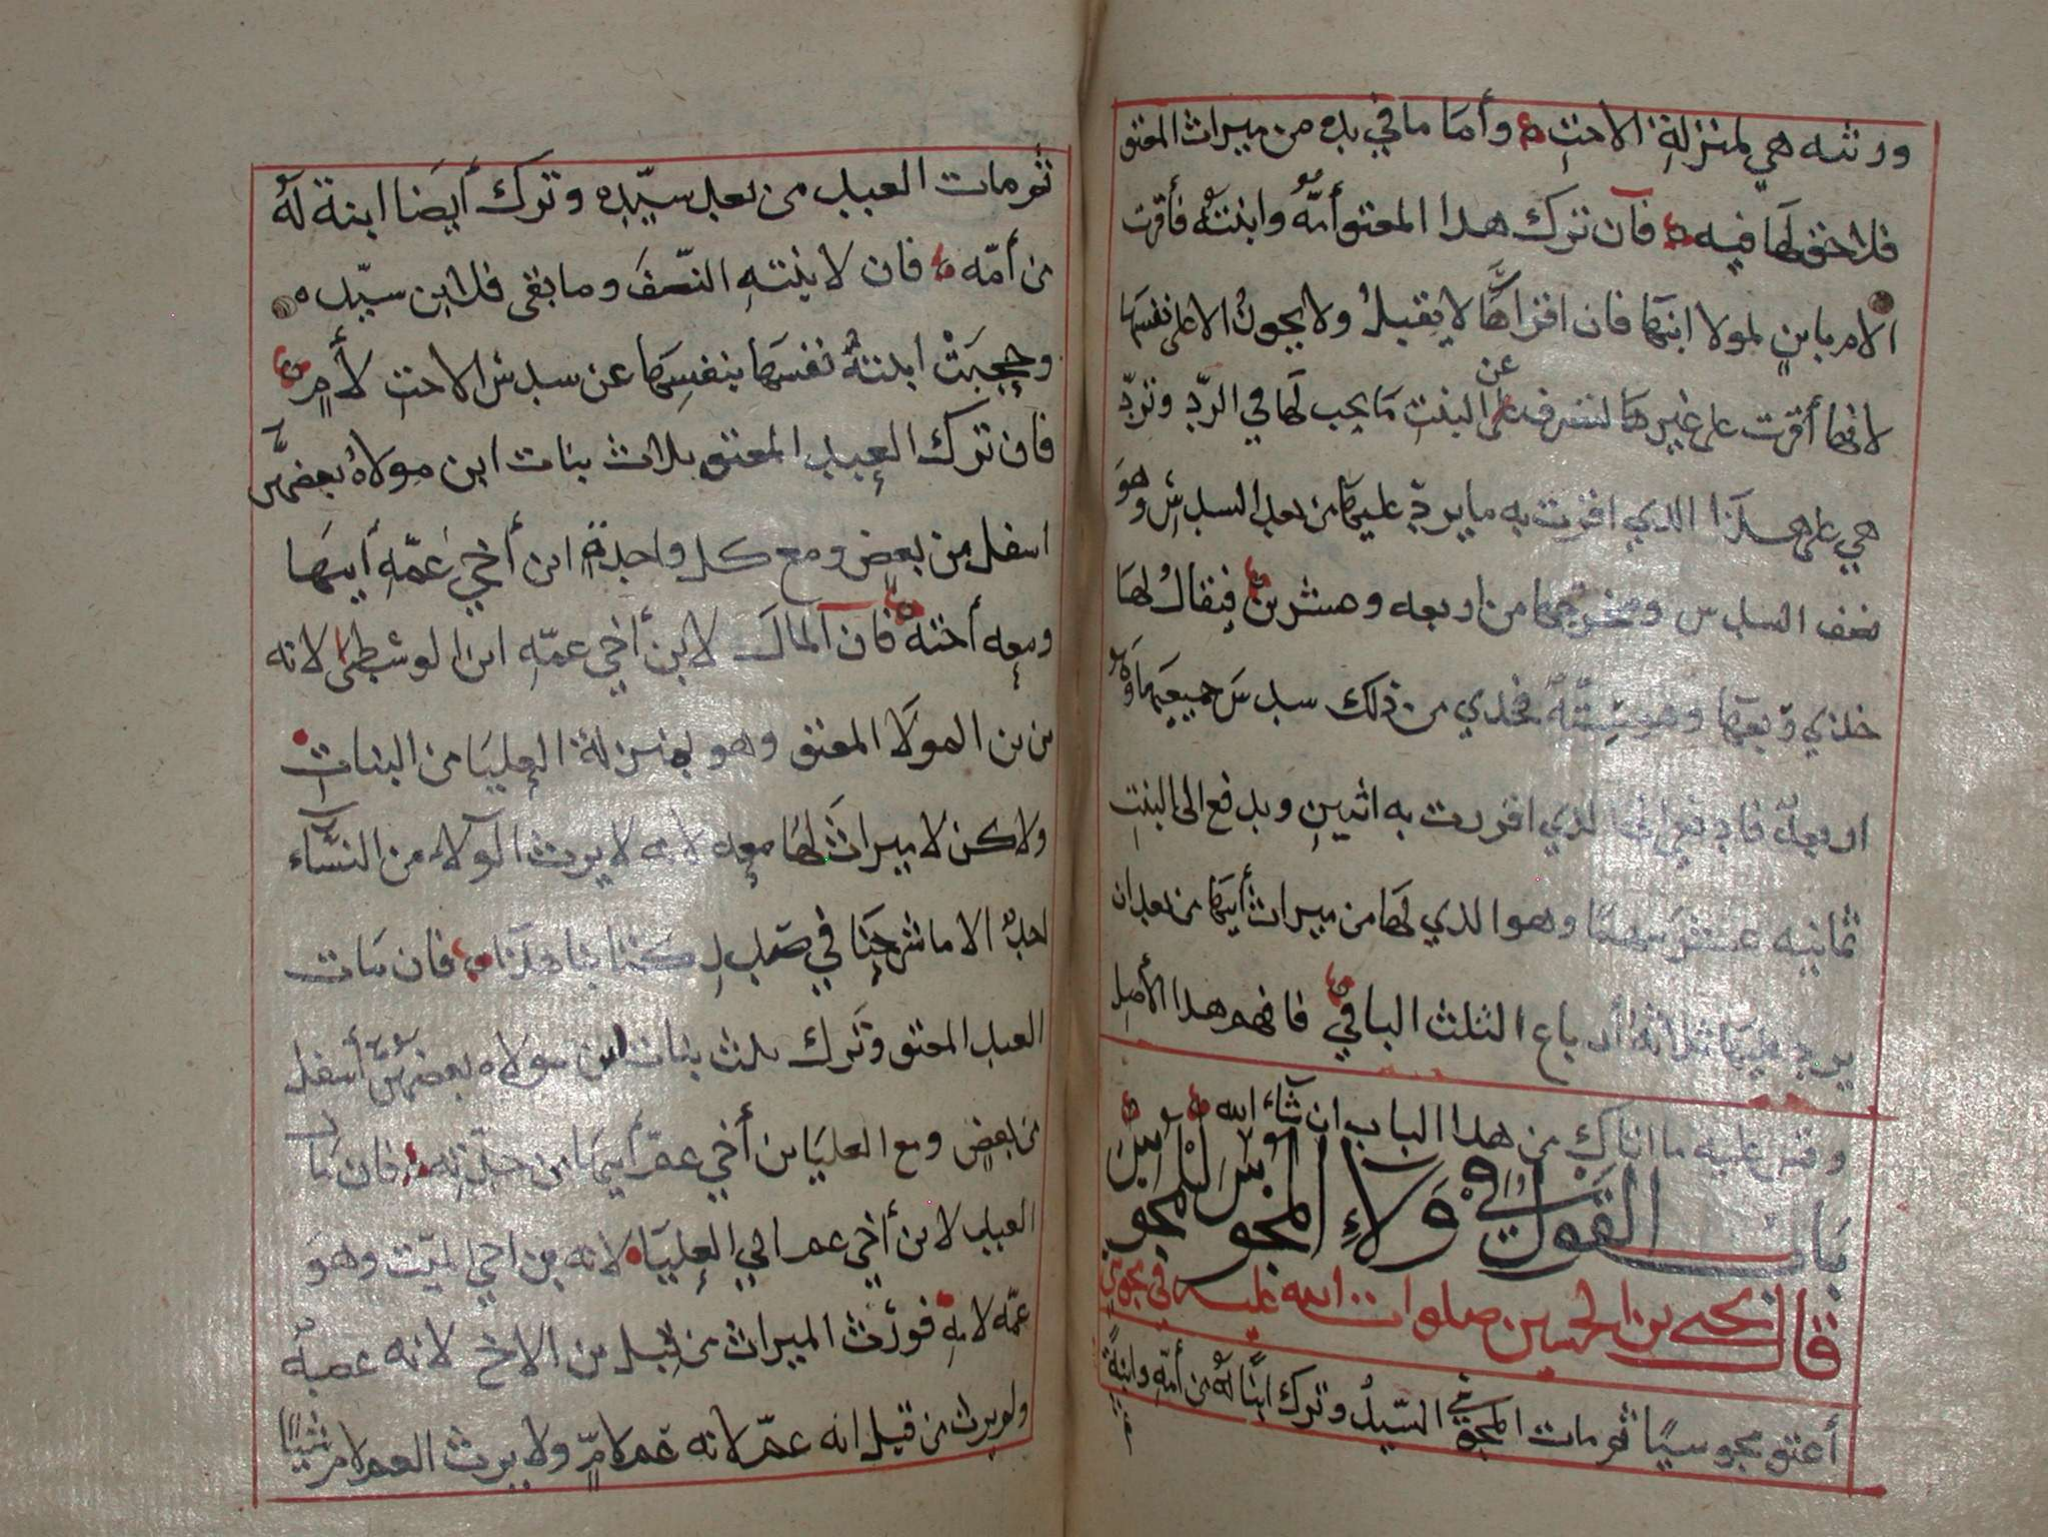 ورثته هي بمنزلة الاخت وأما ما في يده من ميراث المعتق
فلا حق لها فيه فان ترك هذا المعتق أمه وابنته فأقرت
الام بابن لمولا ابنها فان اقرارها لا يقبل ولا يجوز الا على نفسها
لانها أقرت على غيرها عن البنت ما يجب لها في الرد وترد
هي على هذا الذي اقرت به ما يرد عليها من بعد السدس وهو
نصف السدس ومخرجها من اربعه وعشرين فيقال لها
خذي ربعها وهو ستة فخذي من ذلك سدس جميعها وهو
اربعة فادفعي الى الذي اقررت به اثنين ويدفع الى البنت
ثمانيه عشر سهما وهو الذي لها من ميراث أبيها من بعد ان
يرد عليها ثلاثة أرباع الثلث الباقي فافهم هذا الأصل
وقس عليه ما اتاك من هذا الباب ان شاء الله
باب القول في ولاء المجوس للمجوس
قال يحيى بن الحسين صلوات الله عليه في مجوسي
أعتق مجوسيا ثم مات المجوسي السيد وترك ابنا له من أمه وابنة
ثم مات العبد من بعد سيده وترك أيضا ابنة له
من أمه فان لابنته النصف وما بقي فلابن سيده
وحجبت ابنته نفسها بنفسها عن سدس الاخت لأم
فان ترك العبد المعتق ثلاث بنات ابن مولاه بعضهن
اسفل من بعض ومع كل واحدة ابن أخي عمه أبيها
ومعه أخته فان المال لابن أخي عمه ابن الوسطى لانه
بن بن المولا المعتق وهو بمنزلة العليا من البنات
ولاكن لا ميراث لها معه لانه لا يرث الولاء من النساء
احد الا ما شرحنا في صدر كتابنا هذا فان مات
العبد المعتق وترك ثلث بنات ابن مولاه بعضهن أسفل
من بعض ومع العليا بن أخي عم أبيها بن جدته فان مال
العبد لابن أخي عم ابي العليا لانه بن اخي الميت وهو
عمه لامه فورث الميراث من قبل بن الاخ لانه عصبة
ولم يرث من قبل انه عم لانه عم لام ولا يرث العم لام شيئا